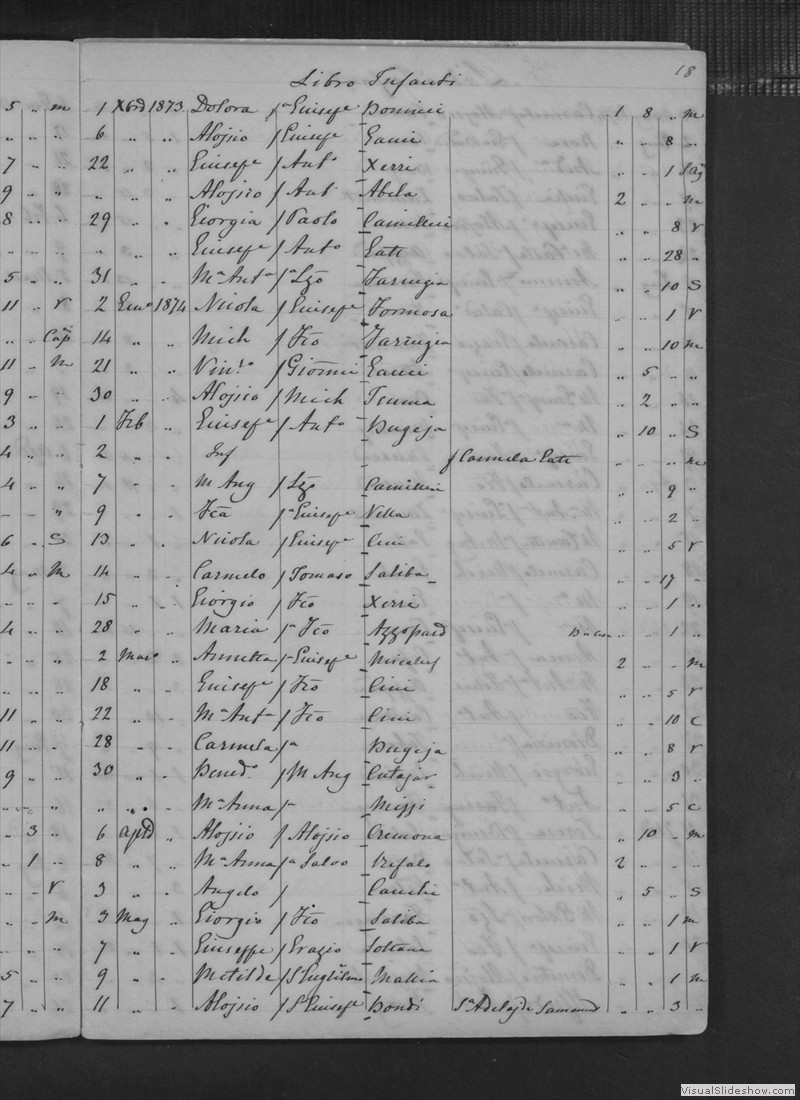 18
Libro Infanti
5 .. m 1 Xbrd 1873 Dolora /a Giusepe 1 8 .. m
.. .. .. 6 .. .. Aloisio / Giusepe Gauci .. .. 8 ..
7 .. .. 22 .. .. Giusepe / Anto Xerri .. .. 1
9 .. .. .. .. .. Aloisio / Ant Abela 2 .. .. m
8 .. .. 29 .. .. Giorgia / Paolo Camilleri .. .. 8 V
.. .. .. .. .. .. Giusepe / Anto Gatt .. .. 28 ..
5 .. .. 31 .. .. Ma Anta /a Lzo Farrugia .. .. 10 S
11 .. V 2 1874 Nicola / Giusepe Formosa .. .. 1 V
.. .. Cap 14 .. .. Mich / Fco Farrugia .. .. 10 m
11 .. M 21 .. .. / Giomi Gauci .. 5 .. ..
9 .. .. 30 .. .. Aloisio / Mich .. 2 .. ..
3 .. .. 1 Feb .. Giusepe / Anto Bugeja .. 10 .. S
4 .. .. 2 .. .. Inf f Carmela Gatt .. .. .. m
4 .. .. 7 .. .. M Ang / Lzo Camilleri .. .. 9 ..
.. .. .. 9 .. .. Fca /a Giusepe Vella .. .. 2 ..
6 .. S 13 .. .. Nicola / Giusepe Cini .. .. 5 V
4 .. M 14 .. .. Carmelo / Tomaso Saliba .. .. 17 ..
.. .. .. 15 .. .. Giorgio / Fco Xerri .. .. 1 ..
4 .. .. 28 .. .. Maria /a Fco Azzopard .. .. 1 ..
.. .. .. 2 Mar .. Annetta /a Giusepe Micalef 2 .. .. m
.. .. .. 18 .. .. Giusepe / Fco Cini .. .. 5 V
11 .. .. 22 .. .. Ma Anta / Fco Cini .. .. 10 C
11 .. .. 28 .. .. Carmela /a Bugeja .. .. 8 V
9 .. .. 30 .. .. Bened. / M Ang Cutajar .. .. 3 ..
.. .. .. .. .. .. Ma Anna /a Mizzi .. .. 5 C
.. 3 .. 6 Apld .. Aloisio / Aloisio Cremona .. 10 .. m
.. 1 .. 8 .. .. Ma Anna /a Salvo 2 .. .. ..
.. .. V 3 .. .. Angelo / Cauchi .. 5 .. S
.. .. m 3 May .. Giorgio / Fco Saliba .. .. 1 m
.. .. .. 7 .. .. Giuseppe / Grazio Soltana .. .. 1 V
5 .. .. 9 .. .. Matilde / S Guglilmo Mallia .. .. 1 m
7 .. .. 11 .. .. Aloisio / S Giusepe Bondi Sa Adelajde .. .. 3 ..
VisualSlideshow.com